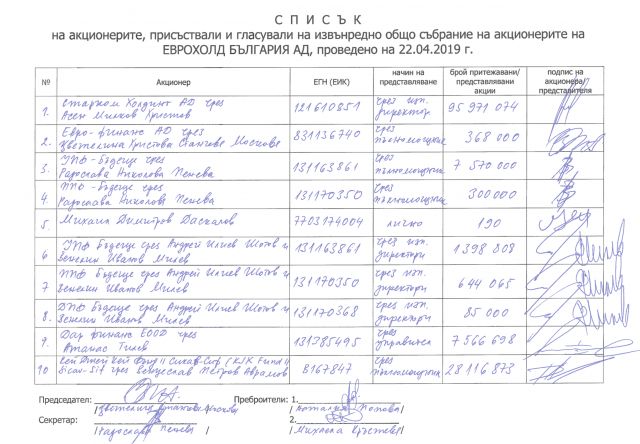 С П И С Ъ К
на акционерите, присъствали и гласували на извънредно общо събрание на акционерите на
ЕВРОХОЛД БЪЛГАРИЯ АД, проведено на 22.04.2019 г.
№ Акционер ЕГН (ЕИК) начин на представляване брой притежавани/представлявани акции подпис на акционера/представителя
1. Старком Холдинг АД чрез Асен Милков Христов 121610851 чрез изп. директор 95 971 074
2. Евро-финанс АД чрез Цветелина Христова Станчева Москова 831136740 чрез пълномощник 368 000
3. УПФ-Бъдеще чрез Радослава Николова Пенева 131163861 чрез пълномощник 7 570 000
4. ППФ-Бъдеще чрез Радослава Николова Пенева 131170350 чрез пълномощник 300 000
5. Михаил Димитров Даскалов 7703174004 лично 190
6 УПФ Бъдеще чрез Андрей Илиев Шотов и Венелин Иванов Милев 131163861 чрез изп. директори 1 398 808
7 ППФ Бъдеще чрез Андрей Илиев Шотов и Венелин Иванов Милев 131170350 чрез изп. директори 644 065
8. ДПФ Бъдеще чрез Андрей Илиев Шотов и Венелин Иванов Милев 131170368 чрез изп. директори 85 000
9. Дар финанс ЕООД чрез Атанас Тилев 131385495 чрез управител 7 566 698
10 Кей Джей Кей Фонд II Сикав-Сиф (KJK Fund II Sicav-Sif чрез Венцислав Петров Аврамов 8167847 чрез пълномощник 28 116 873
Председател: Преброители: 1.
/Цветелина Станчева-Москова/ /Наталия Попова/
Секретар: 2.
/Радослава Пенева/ /Михаела Кръстева/